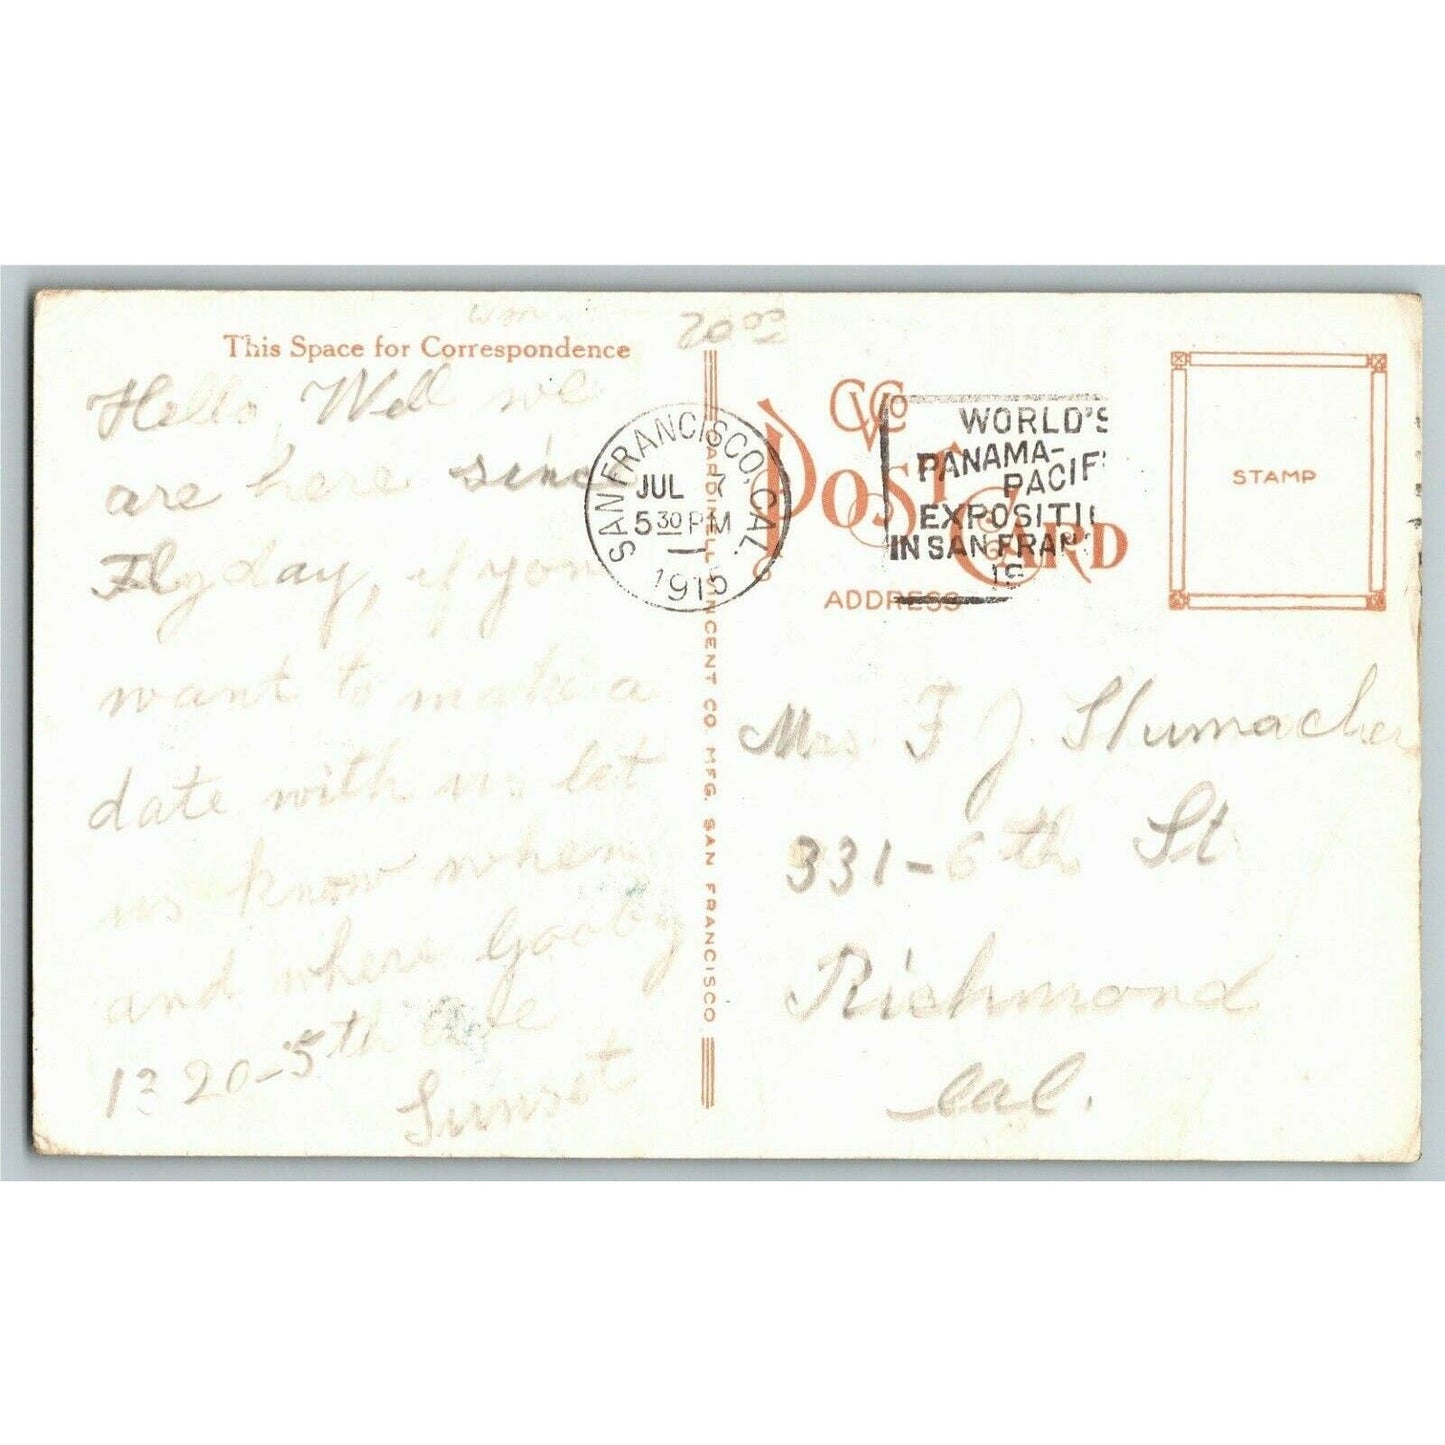 This Space for Correspondence
Hello, Well we
are here since
Flyday, if you
want to make a
date with us let
us know when
and where Gooby
1320-5th Ave
Sunset
CARDINELL VINCENT CO. MFG. SAN FRANCISCO
SAN FRANCISCO, CAL.
JUL 7
5 30 PM
1915
WORLD'S
PANAMA-
PACIFI
EXPOSITI
IN SAN FRAN
19
POST CARD
ADDRESS
STAMP
Mrs F J Stumacher
331-6th St
Richmond
Cal.